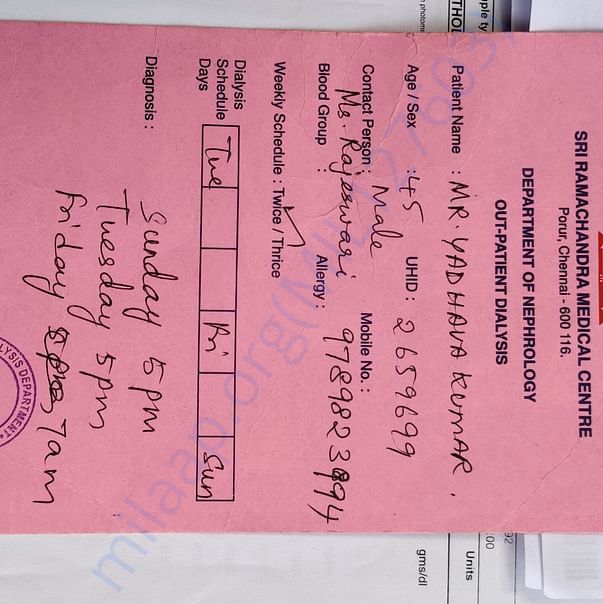 SRI RAMACHANDRA MEDICAL CENTRE
Porur, Chennai - 600 116.
DEPARTMENT OF NEPHROLOGY
OUT-PATIENT DIALYSIS
Patient Name : MR. YADHAVA KUMAR.
Age / Sex : 45 Male UHID : 2659699
Contact Person : Ms. Rajeswari Mobile No. : 9789823994
Blood Group : Allergy :
Weekly Schedule : Twice / Thrice
Dialysis Schedule Days Tue Fri Sun
Diagnosis :
Sunday 5 pm
Tuesday 5 pm
Friday 7am
LYSIS DEPARTMENT
milaap.org
Units
gms/dl